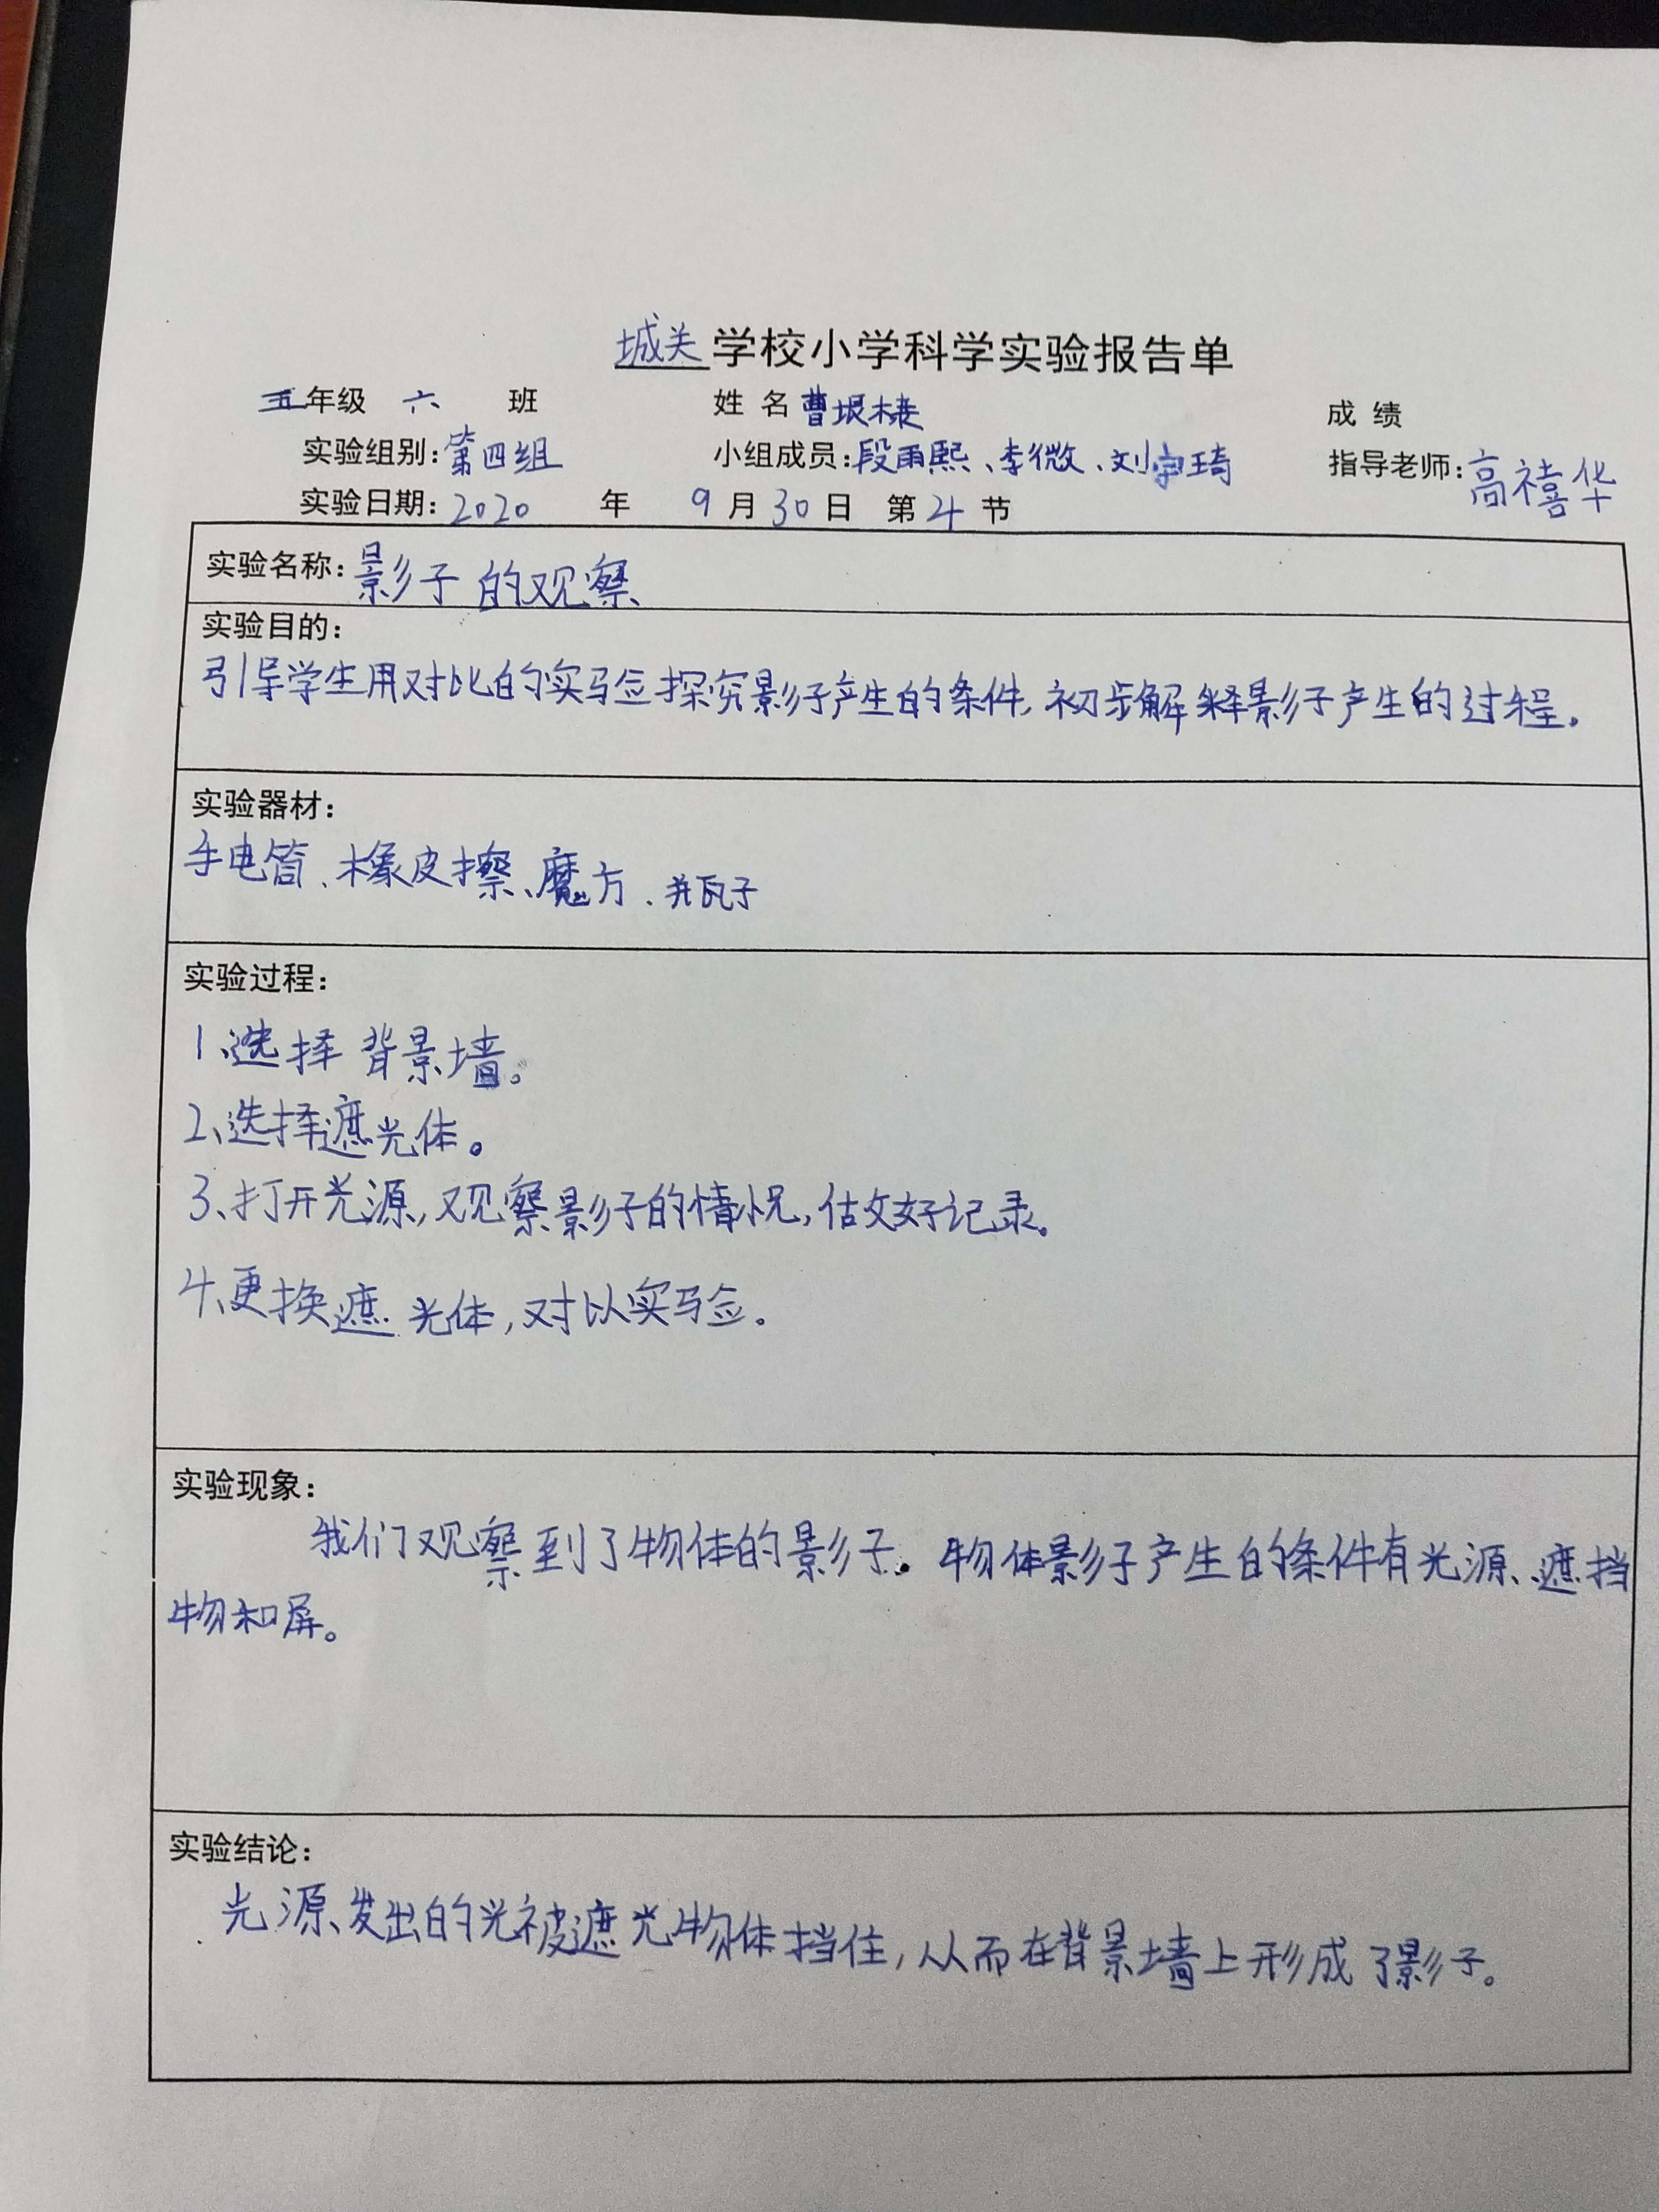 城关学校小学科学实验报告单
五年级 六 班 姓 名 曹垠棲 成 绩
实验组别：第四组 小组成员：段雨熙、李微、刘宇琦 指导老师：高禧华
实验日期：2020 年 9 月 30 日 第 4 节
实验名称：影子的观察
实验目的：
引导学生用对比的实验探究影子产生的条件，初步解释影子产生的过程。
实验器材：
手电筒、橡皮擦、魔方、瓶子
实验过程：
1、选择背景墙。
2、选择遮光体。
3、打开光源，观察影子的情况，做好记录。
4、更换遮光体，对比实验。
实验现象：
我们观察到了物体的影子。物体影子产生的条件有光源、遮挡
物和屏。
实验结论：
光源发出的光被遮光物体挡住，从而在背景墙上形成了影子。